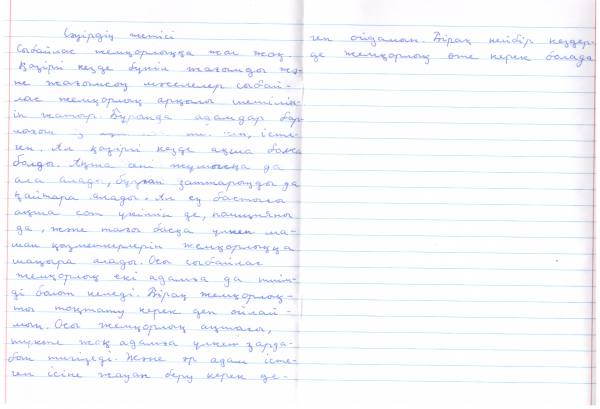 Сәуірдің жетісі
Сыбайлас жемқорлыққа жол жоқ.
Қазіргі кезде бүкіл жағымды жә-
не жағымсыз мәселелер сыбай-
лас жемқорлық арқылы шешілін-
іп жатыр. Бұрында адамдар бар
істе-
ген. Ал қазіргі кезде ақша басқа
болды. Ақша сені жұмысқа да
ала алады, бұзған заттарыңды да
қайтара алады. Ал ең бастысы
ақша сот үкімін де, полицияны
да, және тағы басқа үлкен ма-
ман қызметкерлерін жемқорлыққа
шақыра алады. Осы сыбайлас
жемқорлық екі адамға да тиім-
ді болып келеді. Бірақ жемқорлық-
ты тоқтату керек деп ойлай-
мын. Осы жемқорлық ақшасы,
түкте жоқ адамға үлкен зарда-
бын тигізеді. Және әр адам істе-
ген ісіне жауап беру керек де-
ген ойдамын. Бірақ кейбір кездер-
де жемқорлық өте керек болады